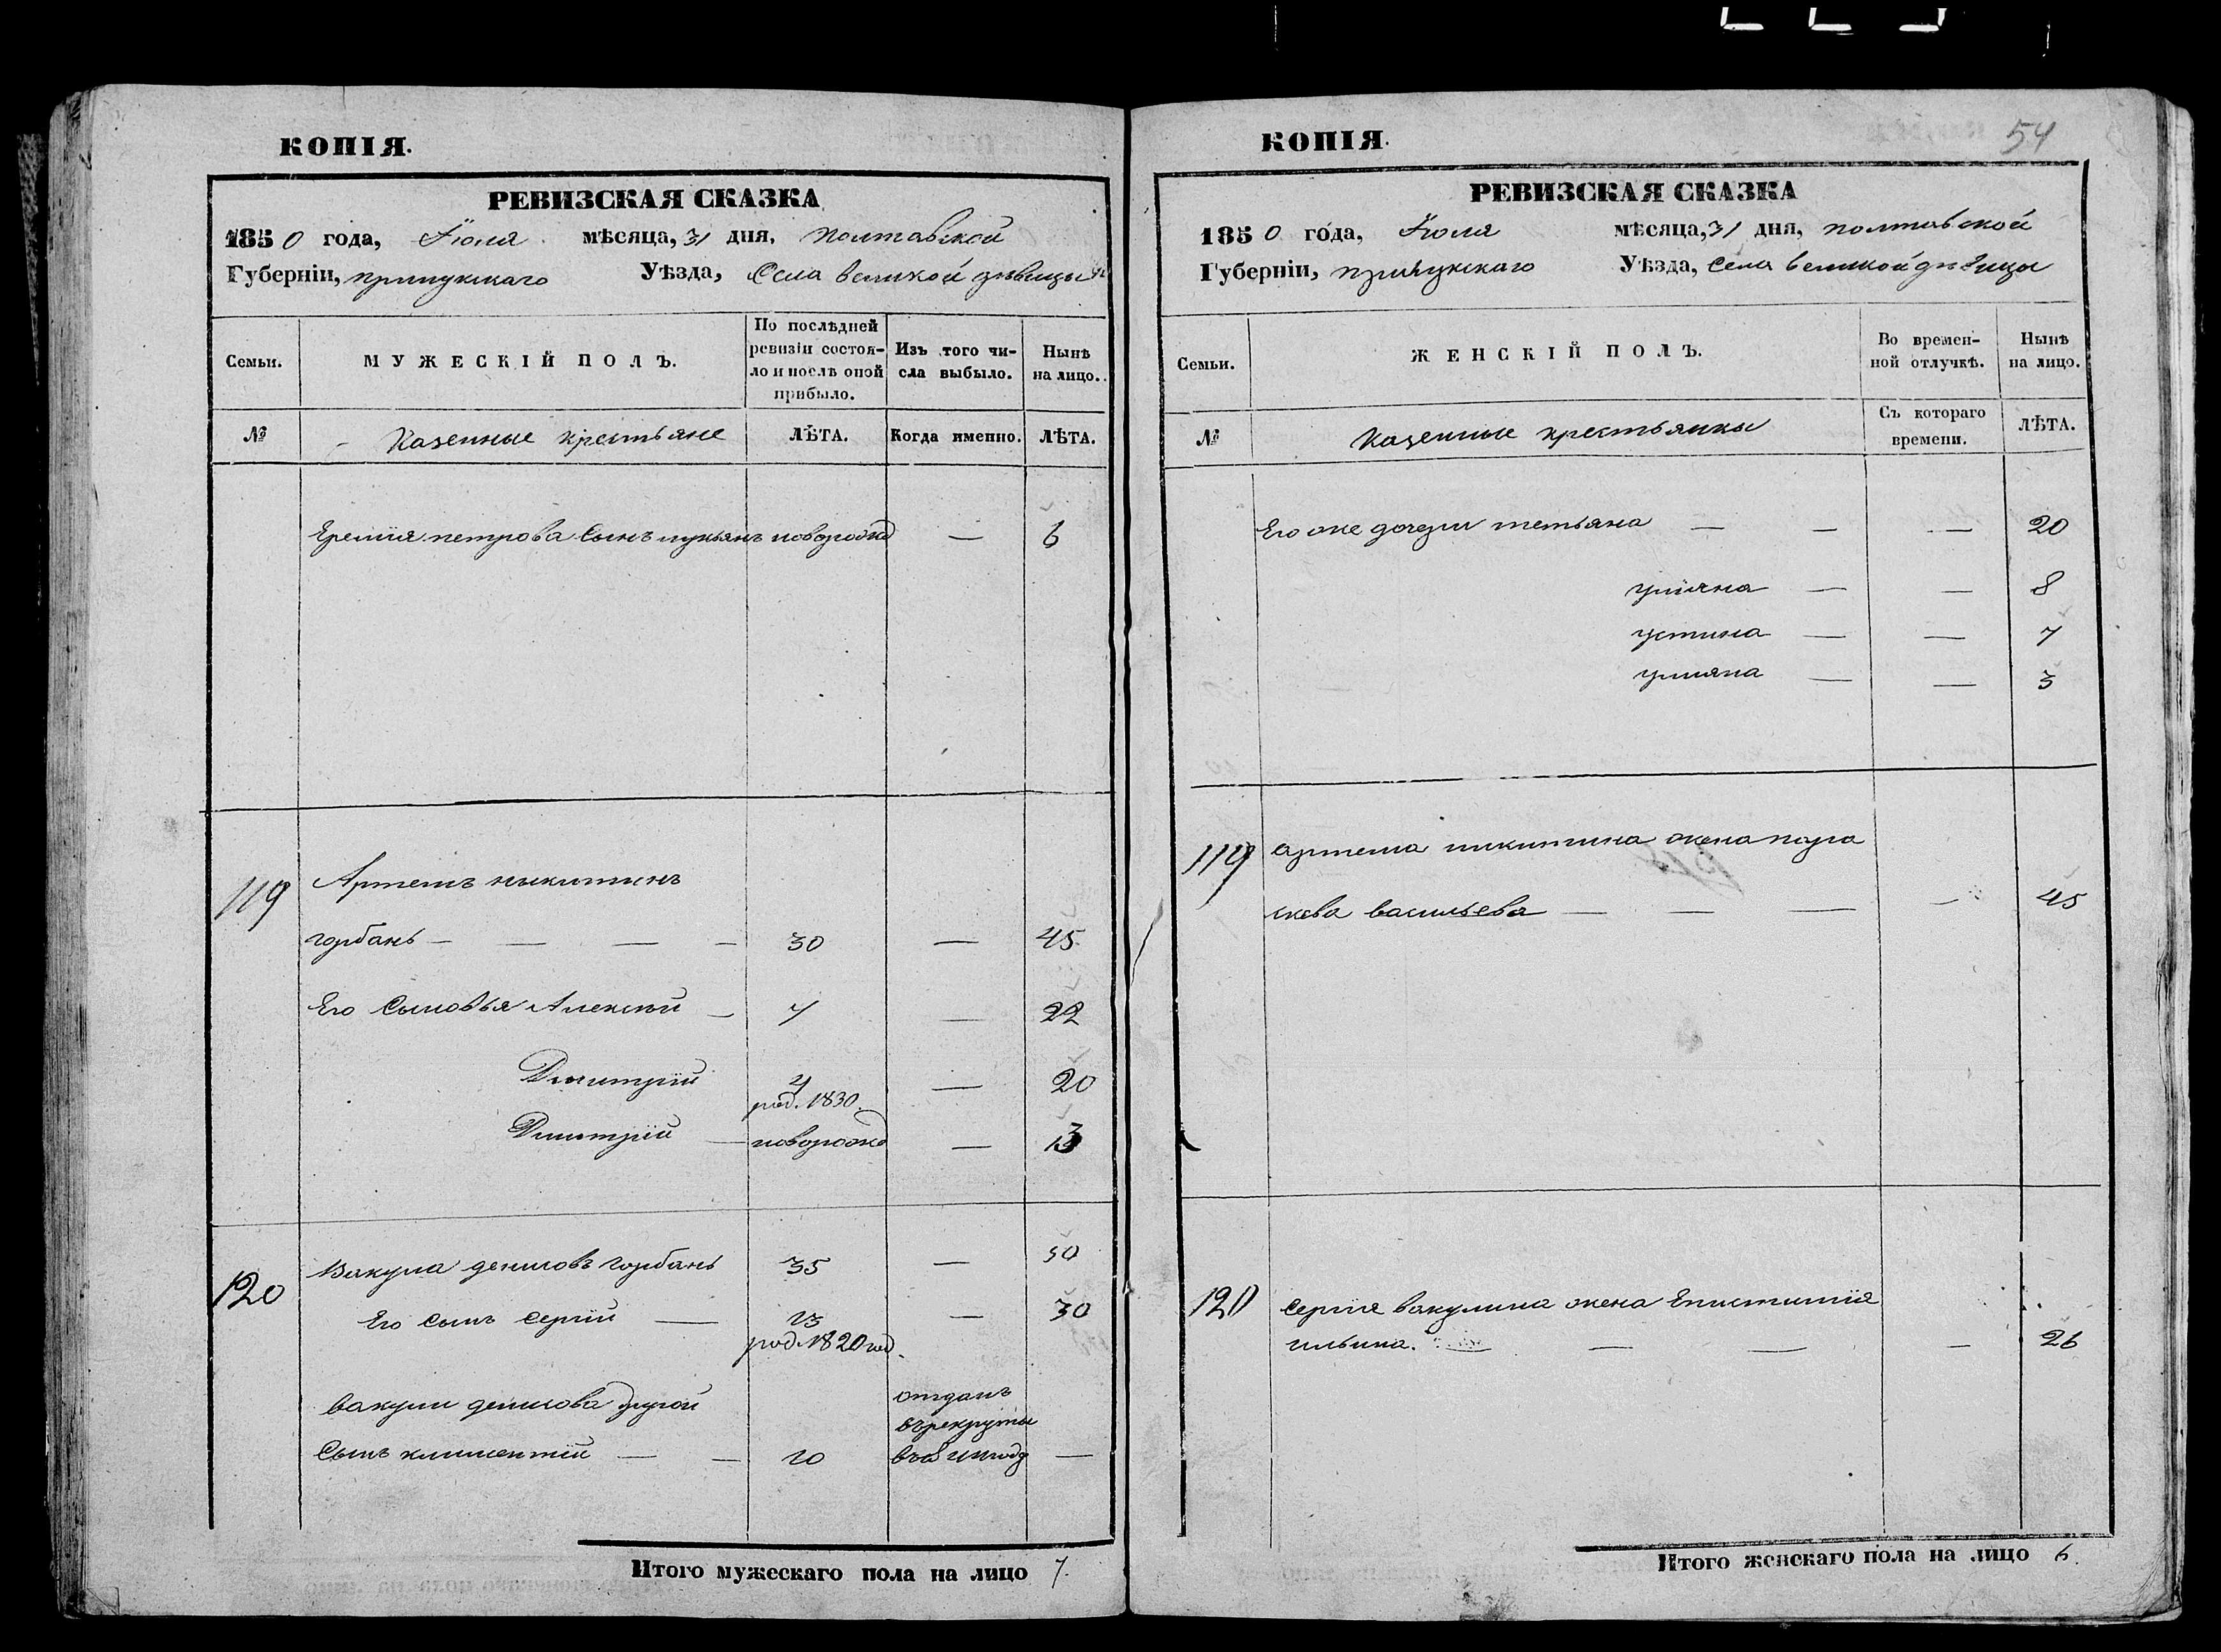 КОПІЯ.
РЕВИЗСКАЯ СКАЗКА
1850 года, Іюля мѣсяца, 31 дня, полтавской
Губерніи, прилукскаго Уѣзда, Села великой дѣвицы
Семьи. МУЖЕСКІЙ ПОЛЪ. По послѣдней ревизіи состояло и послѣ оной прибыло. Изъ того числа выбыло. Нынѣ на лицо.
№ Казенные крестьяне ЛѢТА. Когда именно. ЛѢТА.
Еремія петрова Сынъ лукьянъ новорожд — 6
119 Артемъ никитинъ
горбань — — — — 30 — 45
Его Сыновья Алексѣй — 7 — 22
Дмитрій 4 — 20
род. 1830
Дмитрій — новорожд — 13
120 Вакула денисовъ горбань 35 — 50
Его Сынъ Сергій — 13 — 30
род. 1820 год.
вакулы денисова другой отданъ
въ рекруты
Сынъ климентій — — 10 —
Итого мужескаго пола на лицо 7.
КОПІЯ.
54
РЕВИЗСКАЯ СКАЗКА
1850 года, Іюля мѣсяца, 31 дня, полтавской
Губерніи, прилукскаго Уѣзда, Села великой дѣвицы
Семьи. ЖЕНСКІЙ ПОЛЪ. Во временной отлучкѣ. Нынѣ на лицо.
№ Казенные крестьянки Съ котораго времени. ЛѢТА.
Его же дочери тетьяна — — — 20
уліяна — — 8
устина — — 7
уліяна — — 3
119 артема никитина жена пара
скева васильева — — — — 45
120 Сергія вакулина жена Епистимія
ильина. — — — — 26
Итого женскаго пола на лицо 6.